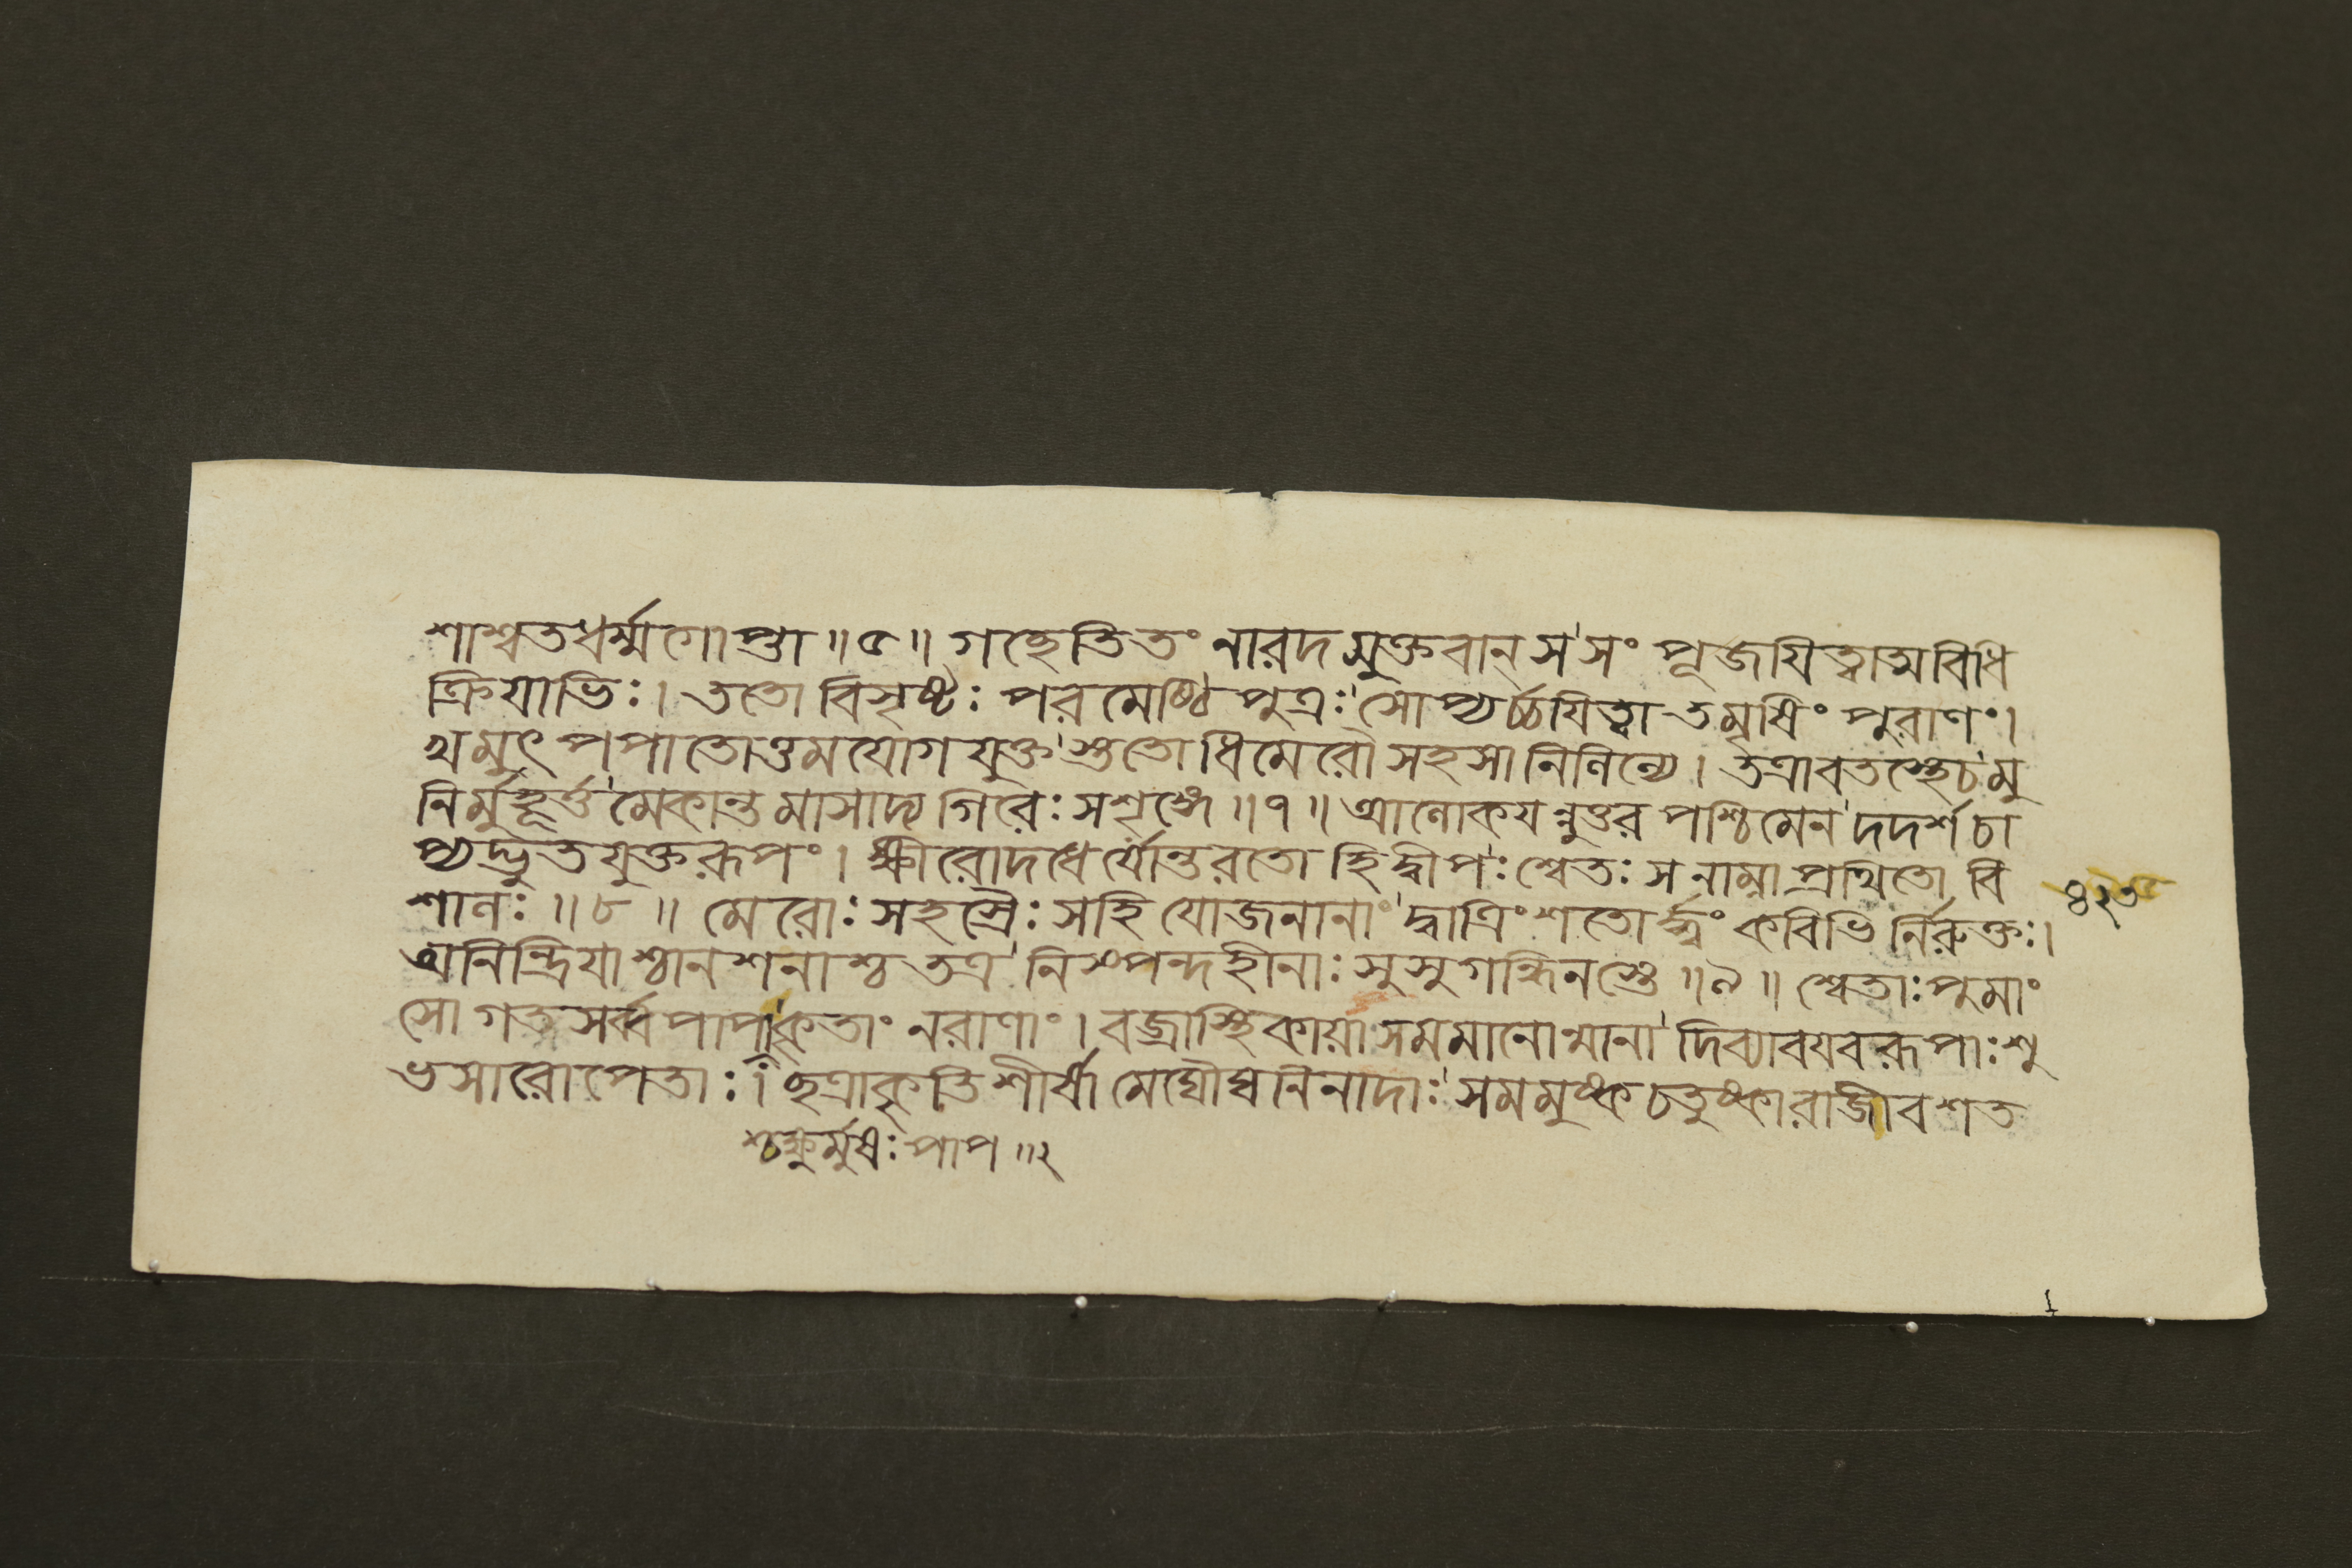 শাশ্বতধর্ম্মগোপ্তা ॥৫॥ গচ্ছেতিতং নারদমুক্তবান্ স'সং পূজযিত্বাত্মবিধি
ক্রিযাভিঃ। ততো বিসৃষ্টঃ পরমেষ্ঠিপুত্রঃ'সোপ্যর্চ্চযিত্বা তমৃষিং পুরাণং।
খমুৎপপাতোত্তমযোগযুক্ত'স্ততোধিমেরৌ সহসা নিলিল্যে। তত্রাবতস্থেচ'মু
নির্মুহূর্ত্ত'মেকান্তমাসাদ্য গিরেঃ সশৃঙ্গে ॥৭॥ আলোকযন্নুত্তরপশ্চিমেন'দদর্শ চা
প্যদ্ভুতযুক্তরূপং। ক্ষীরোদধের্যোত্তরতো হি দ্বীপ'ঃ শ্বেতঃ স নাম্না প্রথিতো বি
শালঃ ॥৮॥ মেরোঃ সহস্রৈঃ সহি যোজনানাং'দ্বাত্রিংশতোর্দ্ধ্বং কবিভির্নিরুক্তঃ।
অনিন্দ্রিযাশ্চানশনাশ্চ তত্র'নিস্পন্দহীনাঃ সুসুগন্ধিনস্তে ॥৯॥ শ্বেতাঃ পুমাং
সো গতসর্ব্বপাপা'কৃতাং নরাণাং। বজ্রাস্থিকাযাঃ সমমানোন্মানা'দিব্যাবযবরূপাঃ শু
ভসারোপেতাঃ। ছত্রাকৃতিশীর্ষা মেঘৌঘনিনাদাঃ'সমমুষ্কচতুষ্কা রাজীবশত
৪২৩
শ্চক্ষুর্মুষঃ পাপ ॥২